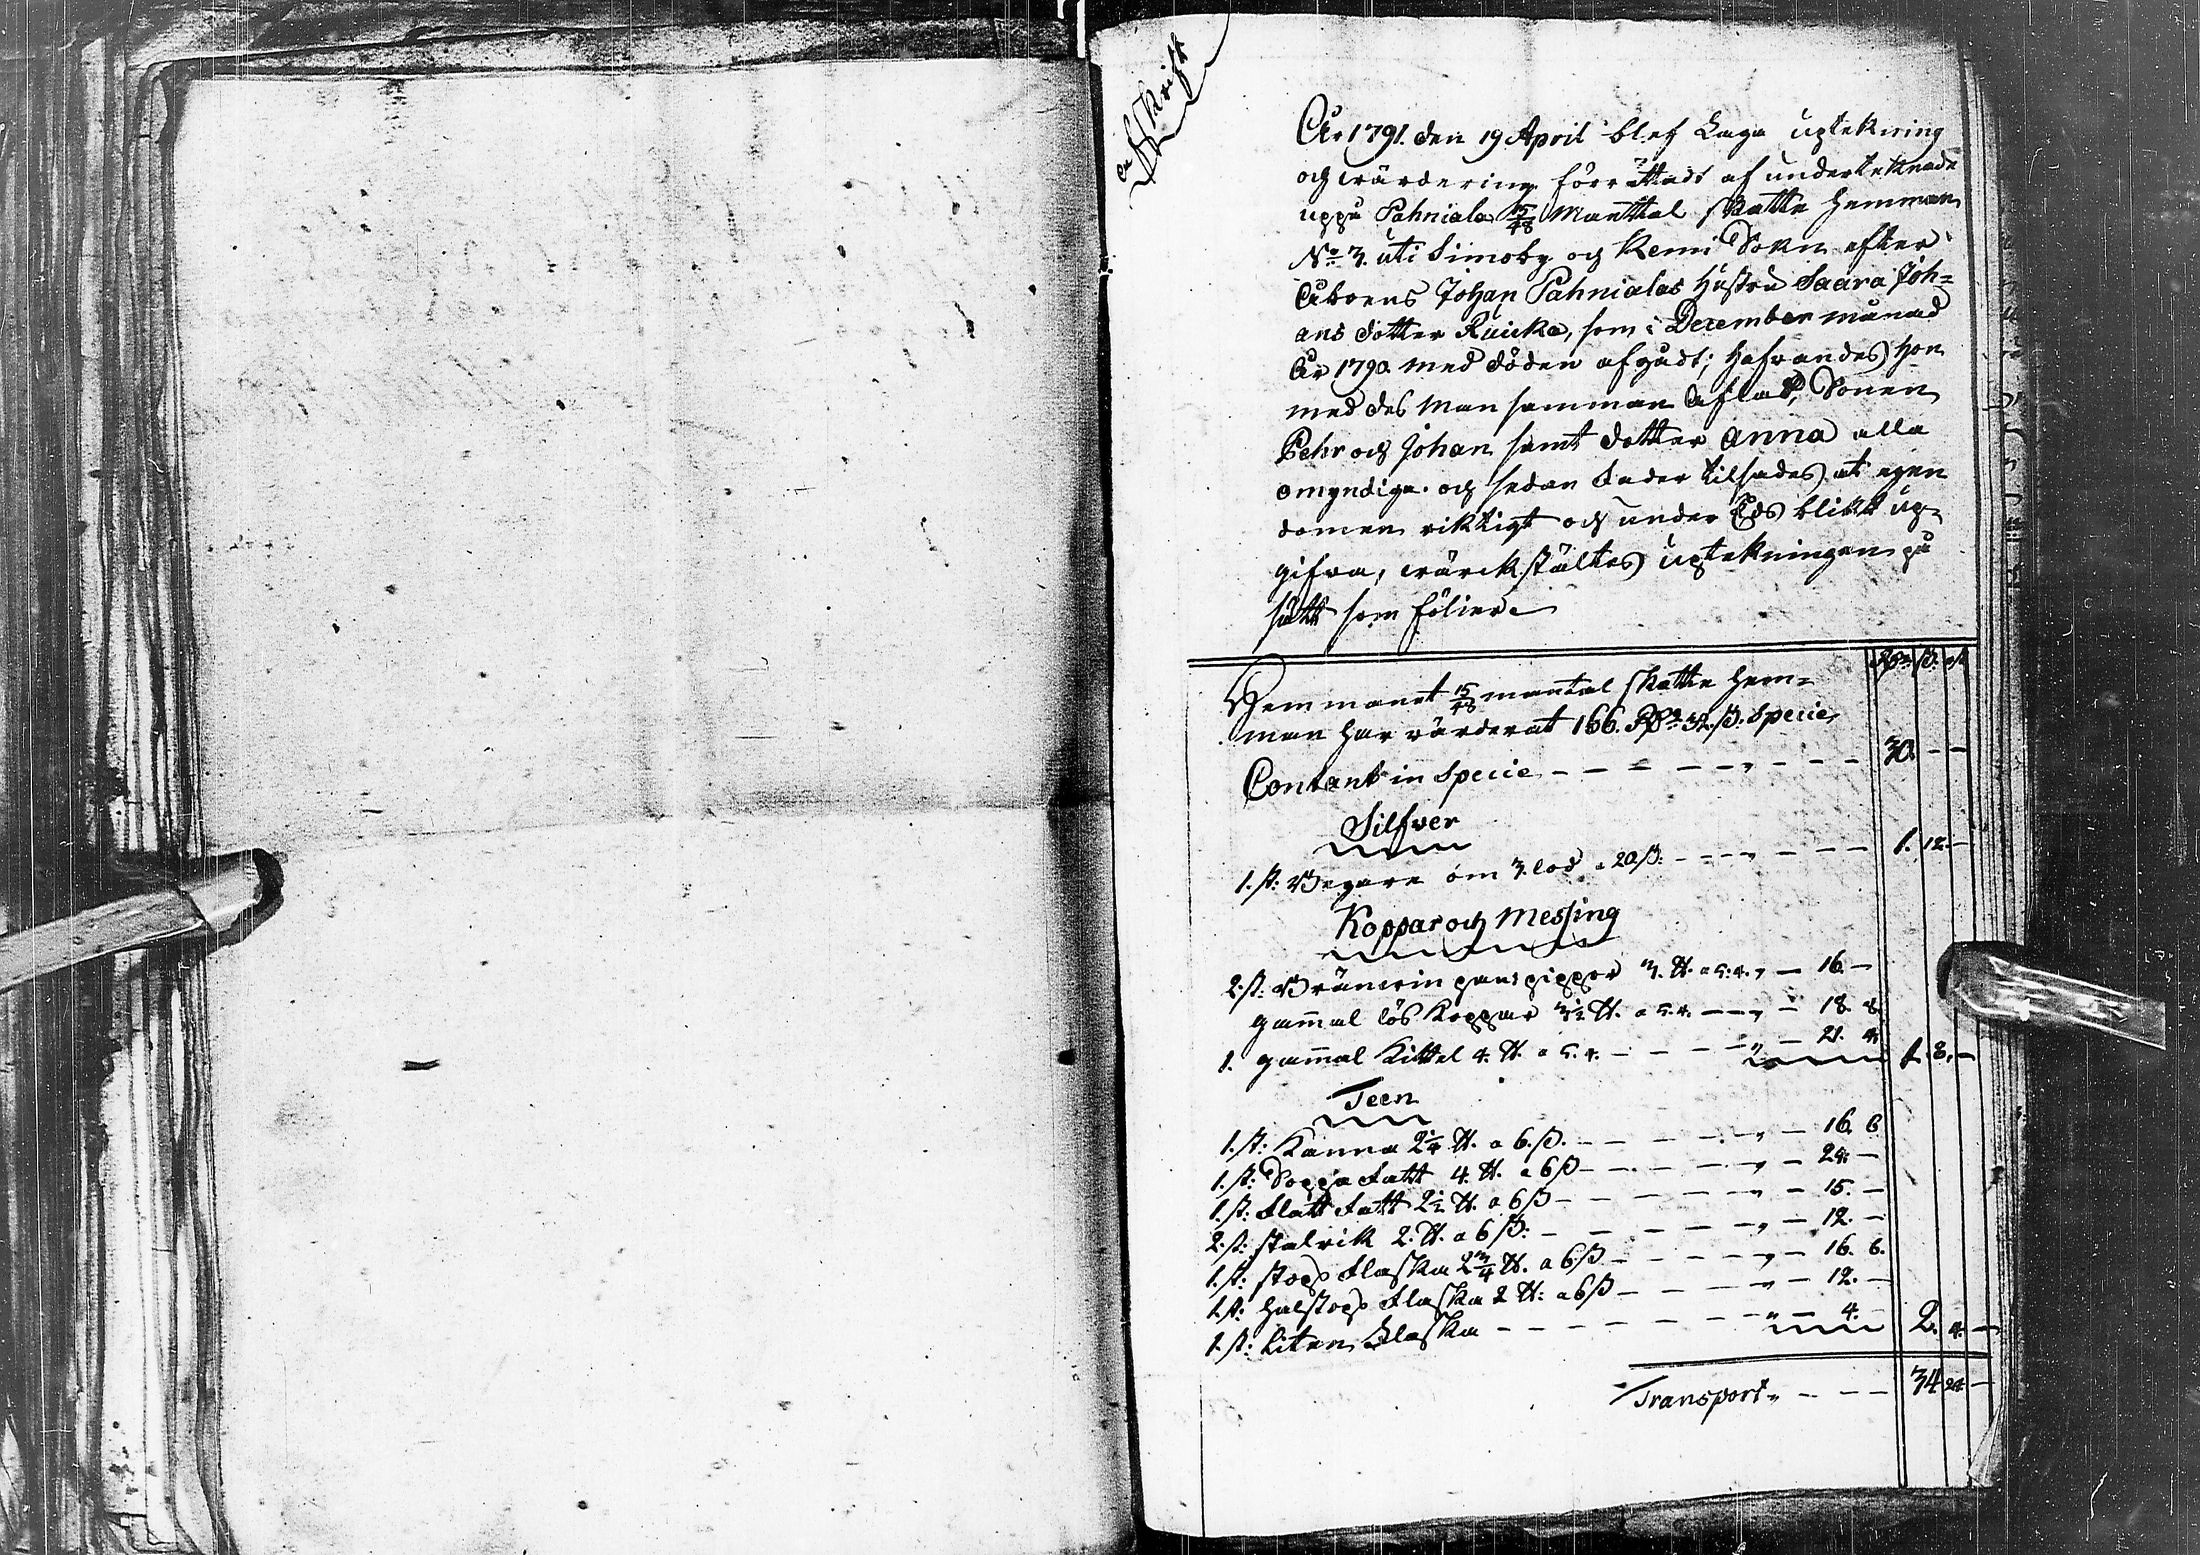 Afskrift
År 1791. den 19 April blef Laga uptekning
och wärdering förrättadt af underteknade
uppå Pahniala 15/48 Manttal skatte hemman
No 3. uti Simoby och Kemi Sokn efter
Åboens Johan Pahnialas Hustru Saara Joh=
ans dotter Ruicka, som i December månad
År 1790 med döden afgådt; hafvandes hon
med des Man samman aflat, Sonen
Pehr och Johan samt dotter Anna alla
omyndiga och sedan Fader tilsades at egen
domen riktigt och under Eds plikt up=
gifva, wärckstältes uptekningen på
sätt som följer
Rdr ß. rst
Hemmanet 15/48 mantal skatte hem=
man har värderat 166. Rdr 32. ß. Specie
Contant in Specie - - - - „ - - - 30. - -
Silfver
1. st: Begare om 3. lod a 20 ß: - - - „ - - - 1. 12. -
Koppar och Messing
2. st: Bränvin pans pippor 3. ℔. a 5. 4. „ - 16. -
gammal lös Koppar 3½ ℔. a 5. 4. - - „ - 18. 8.
1. gammal Kittel 4. ℔. a 5. 4. - - - - „ - 21. 4. 1. 8. -
Teen
1. st: Kanna 2¾ ℔. a 6. ß. - - - - „ - 16. 6
1. st: Soppa Fatt 4. ℔. a 6 ß - - - - „ - 24. -
1. st: Flatt Fatt 2½ ℔. a 6 ß - - - - „ - 15. -
2. st: stalrik 2. ℔. a 6 ß: - - - - „ - 12. -
1. st: stops Flaska 2¾ ℔. a 6 ß - - - „ - 16. 6.
1. st: halfstops Flaska 2 ℔: a 6 ß - - - „ - 12. -
1. st: Liten Flaska - - - - - - „ - 4. - 2. 4. -
Transport „ - - - 34 24 -